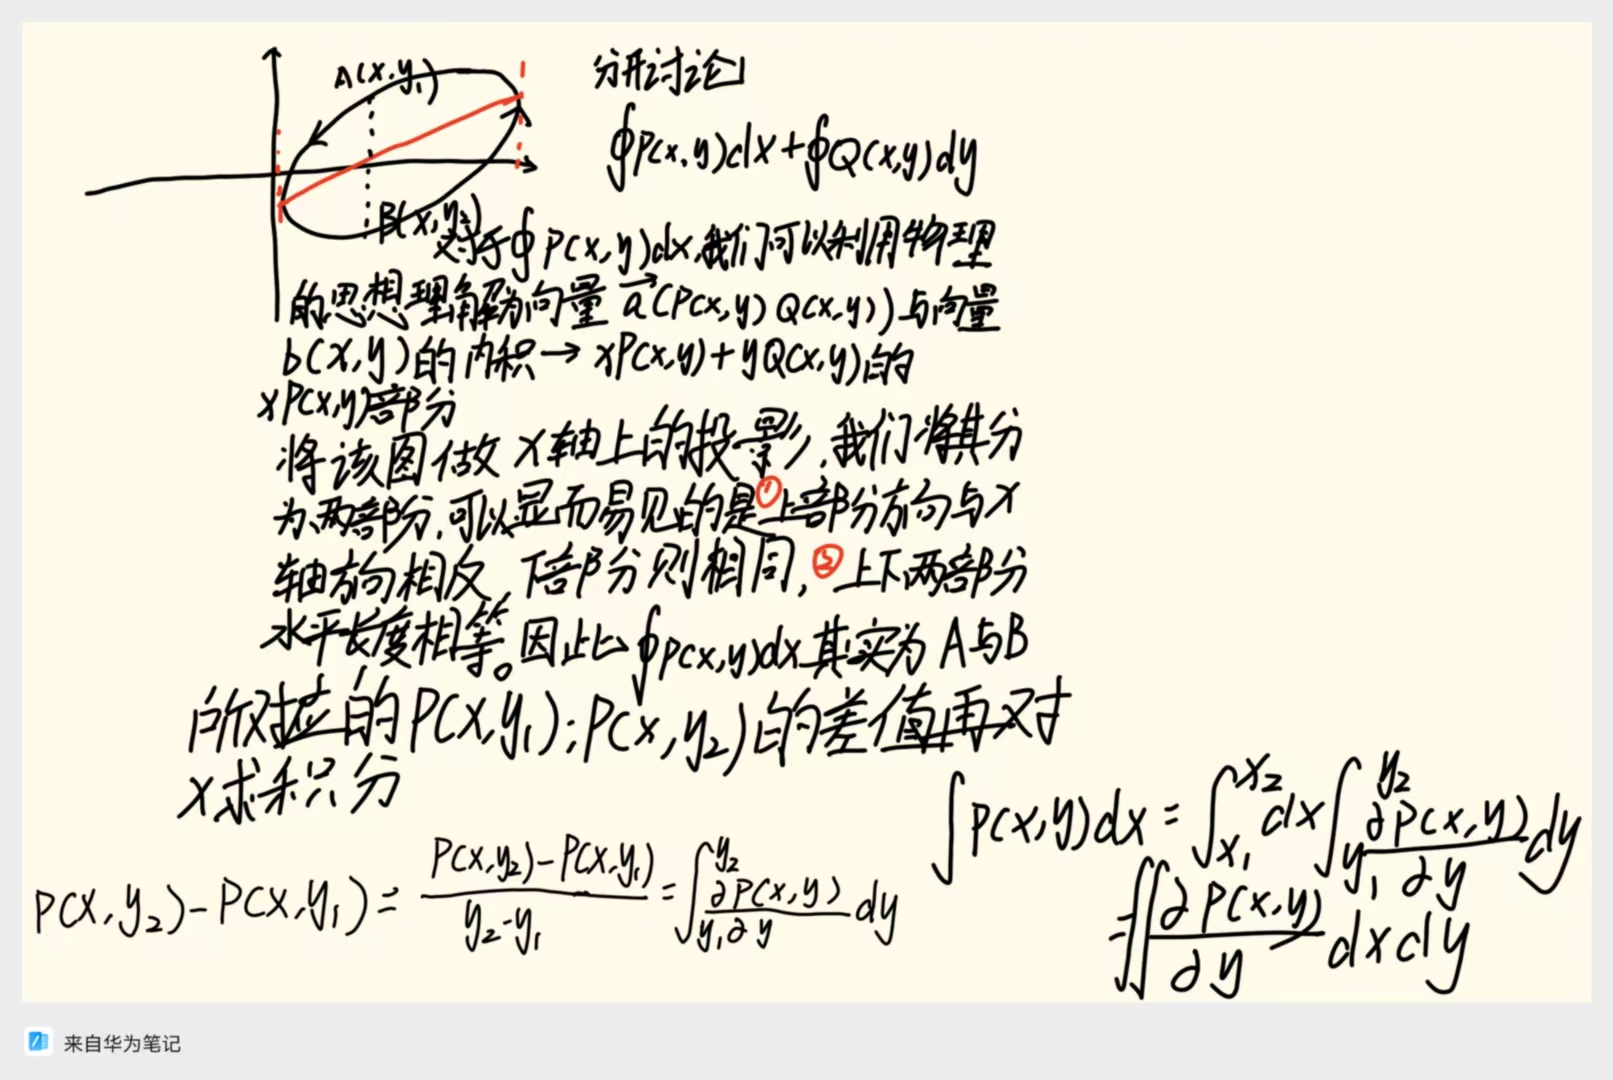 A(x,y₁)
分开讨论
∮P(x,y)dx+∮Q(x,y)dy
B(x,y₂)
对于∮P(x,y)dx,我们可以利用物理
的思想理解为向量a(P(x,y) Q(x,y))与向量
b(x,y)的内积→xP(x,y)+yQ(x,y)的
xP(x,y)部分
将该图做x轴上的投影,我们将其分
为两部分,可以显而易见的是①上部分方向与x
轴方向相反,下部分则相同,②上下两部分
水平长度相等。因此∮P(x,y)dx其实为A与B
所对应的P(x,y₁);P(x,y₂)的差值再对
x求积分
P(x,y₂)-P(x,y₁)=(P(x,y₂)-P(x,y₁))/(y₂-y₁)=∫_{y₁}^{y₂}∂P(x,y)/∂y dy
∫P(x,y)dx=∫_{x₁}^{x₂}dx∫_{y₁}^{y₂}∂P(x,y)/∂y dy
=∬∂P(x,y)/∂y dxdy
来自华为笔记